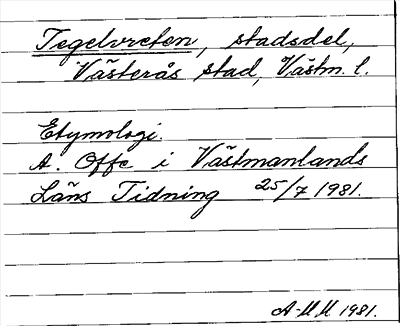 Tegelvreten, stadsdel,
Västerås stad, Västm. l.
Etymologi.
A. Offe i Västmanlands
Läns Tidning 25/7 1981.
A-M M 1981.